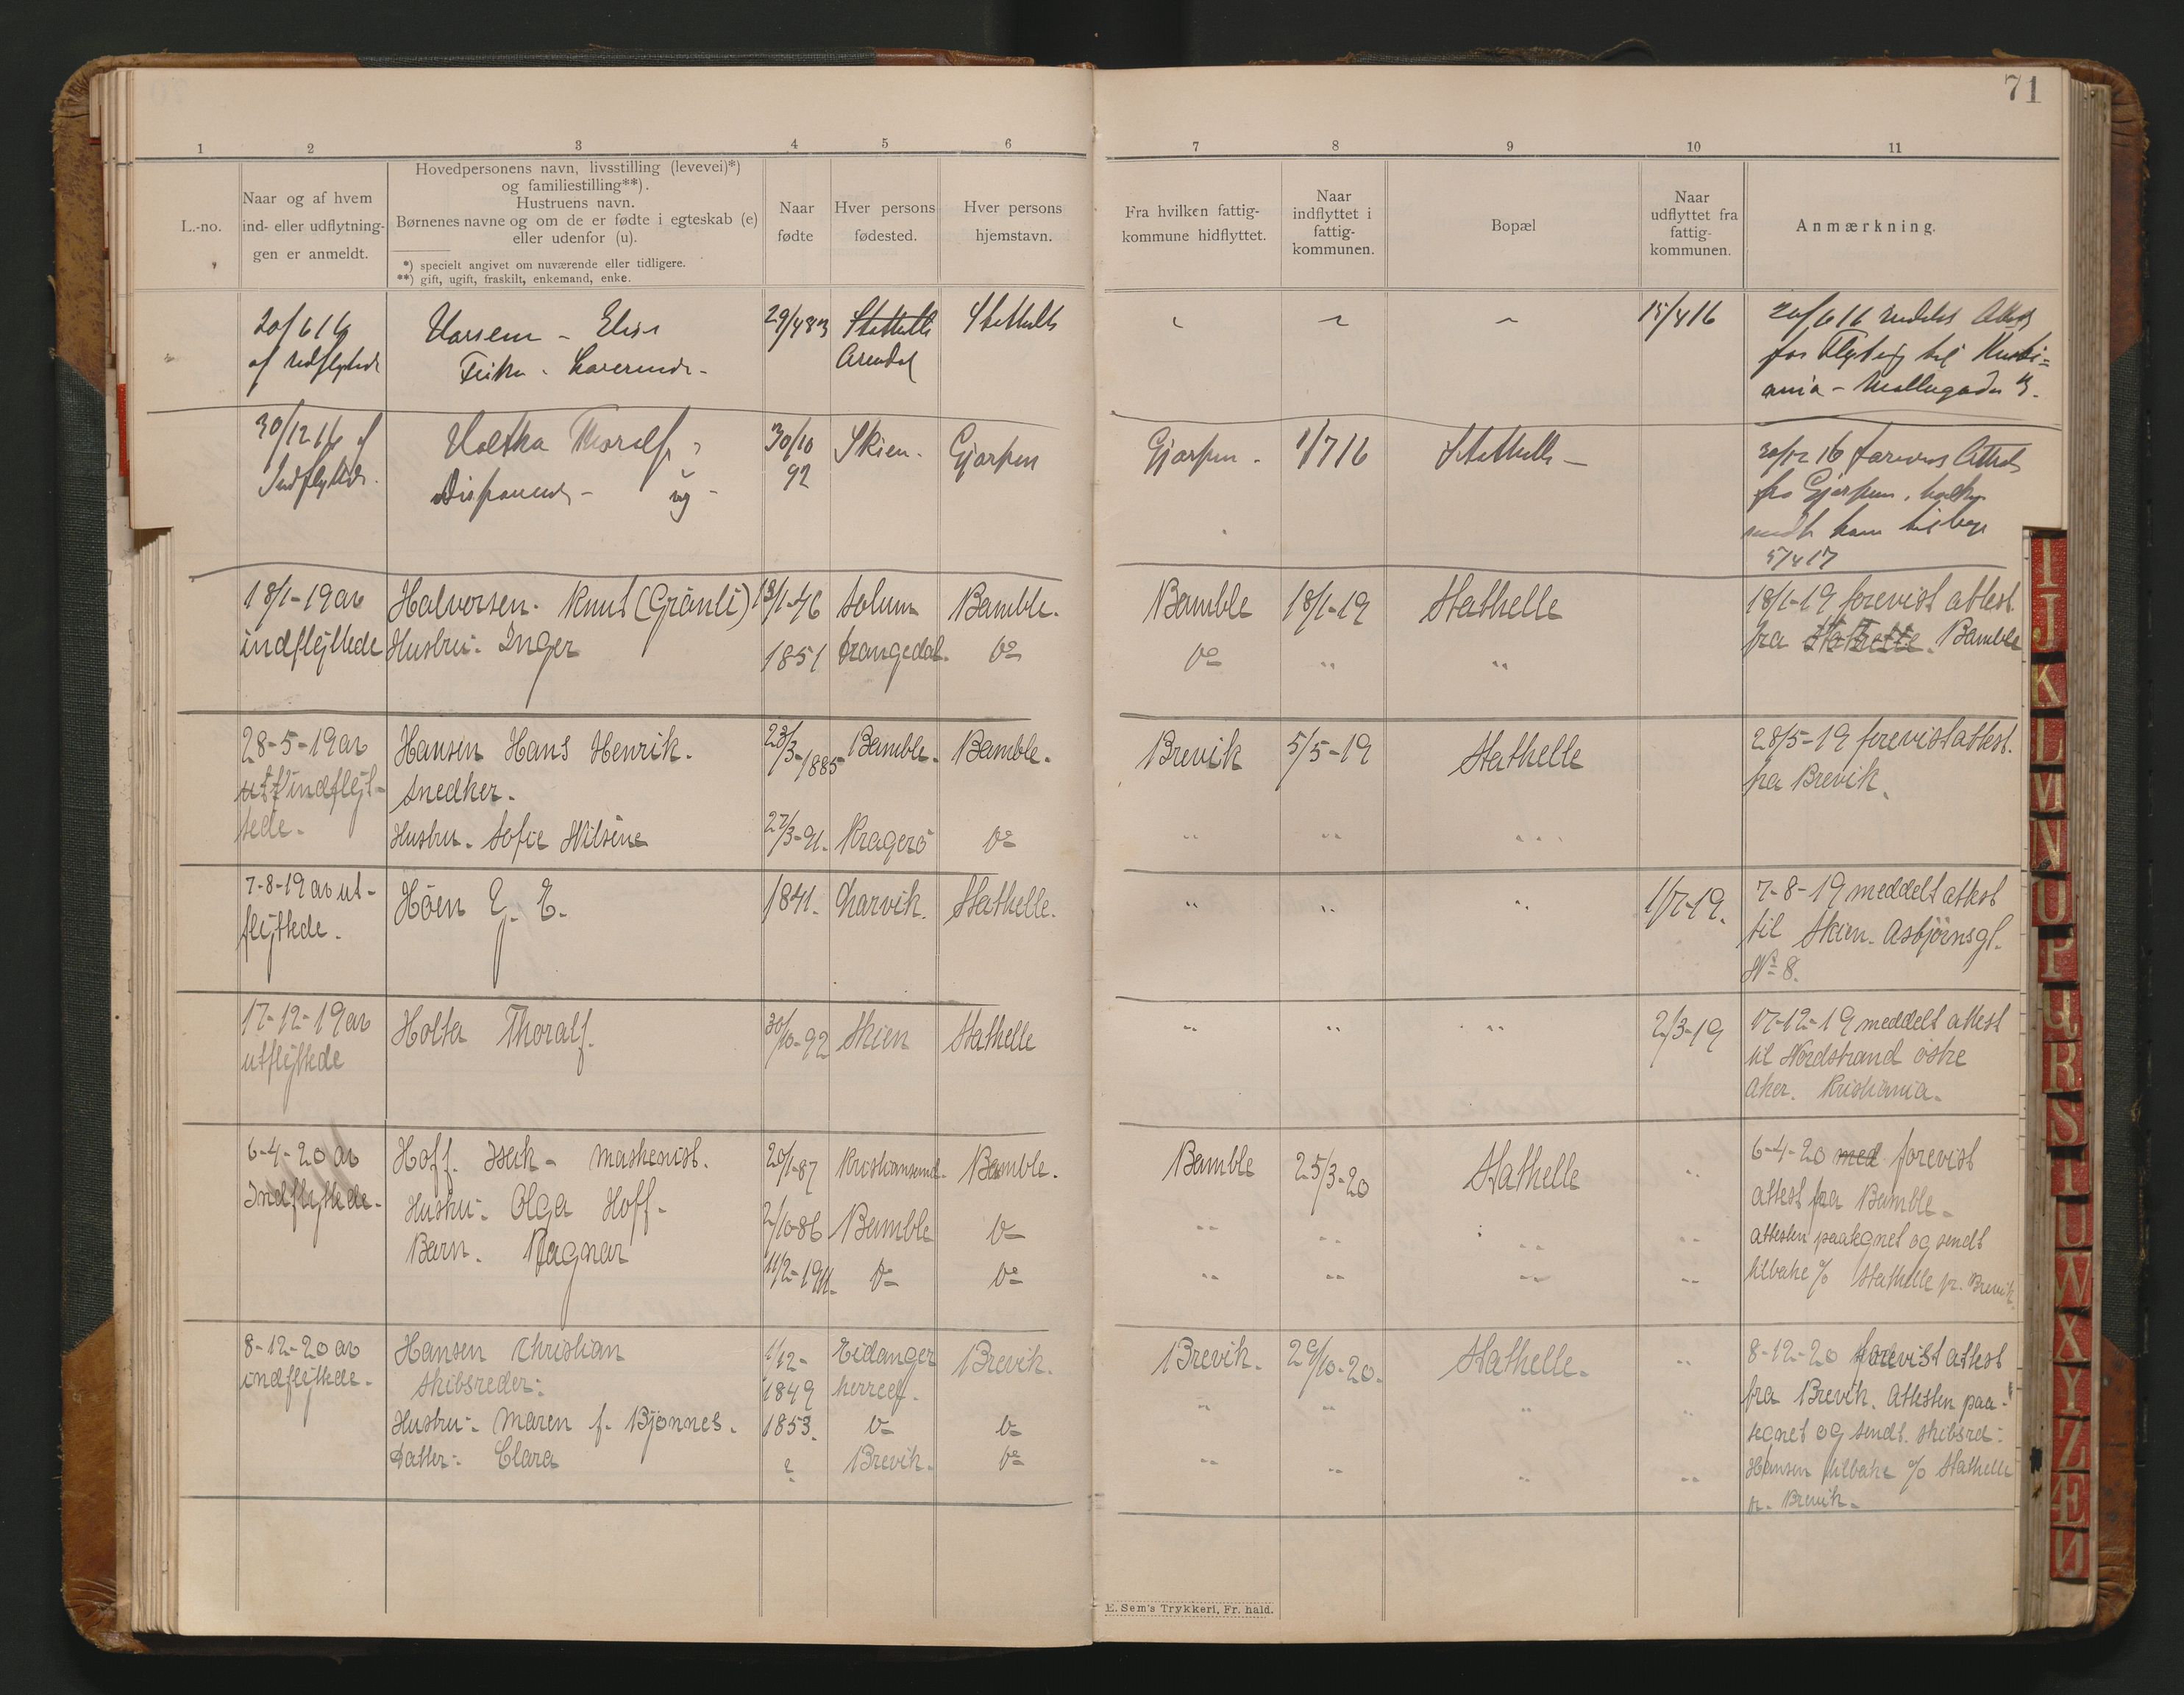 71
1 2 3 4 5 6 7 8 9 10 11
L.-no.
Naar og af hvem
ind- eller udflytnin-
gen er anmeldt.
Hovedpersonens navn, livsstilling (levevei)*)
og familiestilling**).
Hustruens navn.
Børnenes navne og om de er fødte i egteskab (e)
eller udenfor (u).
*) specielt angivet om nuværende eller tidligere.
**) gift, ugift, fraskilt, enkemand, enke.
Naar
fødte
Hver persons
fødested.
Hver persons
hjemstavn.
Fra hvilken fattig-
kommune hidflyttet.
Naar
indflyttet i
fattig-
kommunen.
Bopæl
Naar
udflyttet fra
fattig-
kommunen.
Anmærkning.
20/6 16 29/4 83 Stathelle Stathelle 15/4 16 20/6 16
af udflyttede Arendal
30/12 16 af Thoralf 30/10 Skien. Gjerpen Gjerpen. 1/7 16 Stathelle 30/12 16
Indflyttede. Disponent ug 92 fra Gjerpen.
5/4 17
18/1-19 av Halvorsen. Knut (Grönli) 13/1-46 Solum Bamble. Bamble 18/1-19 Stathelle 18/1-19 forevist attest
indflÿttede Hustru: Inger 1851 Drangedal. Do Do " " fra Stathelle Bamble
28-5-19 av Hansen Hans Henrik. 23/3-1885 Bamble. Bamble. Brevik 5/5-19 Stathelle 28/5-19 forevist attest.
utf indflÿt- Snedker. fra Brevik.
tede. Hustru. Sofie Nilsine 27/3-91. Kragerö Do " " "
7-8-19 av ut- Höen E. 1841. Larvik. Stathelle. " " " 1/7-19. 7-8-19 meddelt attest
flÿttede. til Skien. Asbjörnsgt.
No 8.
17-12-19 av Holta Thoralf. 30/10-92 Skien Stathelle " " " 2/3-19 17-12-19 meddelt attest
utflÿttede til Nordstrand östre
Aker. Kristiania.
6-4-20 av Hoff. Isak - Maskenist. 20/1-87 Kristiansund. Bamble. Bamble 25/3-20 Stathelle " 6-4-20 med forevist
Indflyttede. Hustru: Olga Hoff. 2/10-86 Bamble Do " " " " attest fra Bamble.
Barn. Ragnar 11/2-1911. Do Do " " " " attesten paategnet og sendt
tilbake % Stathelle pr. Brevik.
8-12-20 av Hansen Christian 1/12- Eidanger Brevik. Brevik. 29/10-20. Stathelle. " 8-12-20 forevist attest
indflÿttede. Skibsreder: 1849 herred. fra Brevik. Attesten paa-
Hustru: Maren f. Bjönnes. 1853. Do Do " " " " tegnet og sendt. skibsred:
Datter: Clara ? Brevik. Do " " " " Hansen tilbake % Stathelle
pr. Brevik.
E. Sem's Trykkeri, Fr. hald.
I
J
K
L
M
N
O
P
Q
R
S
T
U
W
X
Y
Z
Æ